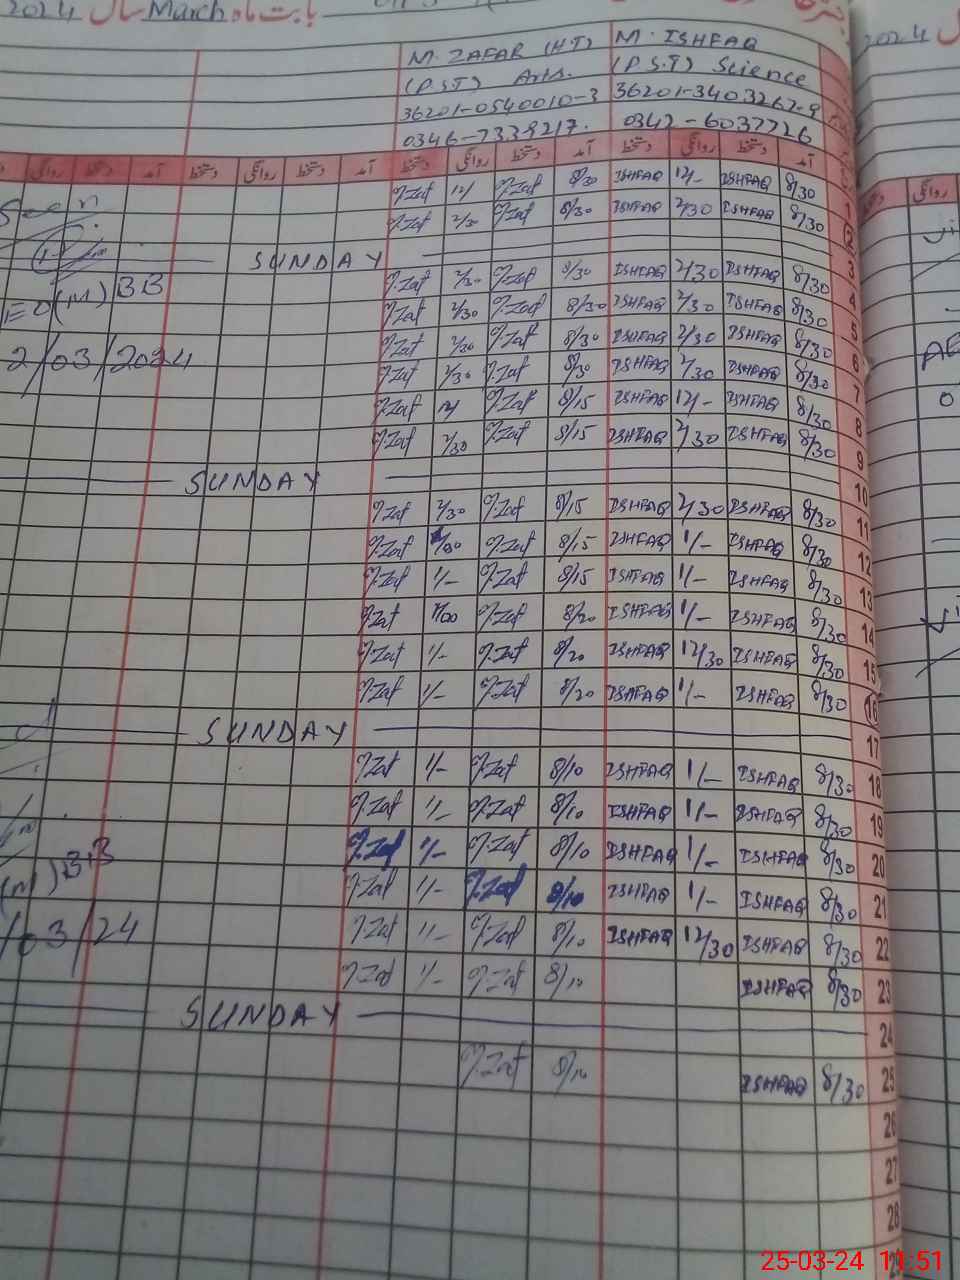 2024 بابت ماہ March سال
M. ZAFAR (HT) M. ISHFAQ
(P.S.T) Arts. (P.S.T) Science
36201-0540010-3 36201-3403267-9
0346-7339217. 0342-6037726
آمد دستخط روانگی دستخط آمد دستخط روانگی دستخط آمد
Zaf 12/ Zaf 8/30 ISHFAQ 12/- ISHFAQ 8/30 1
Zaf 2/30 Zaf 8/30 ISHFAQ 2/30 ISHFAQ 8/30 2
Seen
SUNDAY 3
Zaf 2/30 Zaf 8/30 ISHFAQ 2/30 ISHFAQ 8/30 4
(M) BB
Zaf 2/30 Zaf 8/30 ISHFAQ 2/30 ISHFAQ 8/30 5
2/03/2024
Zaf 2/30 Zaf 8/30 ISHFAQ 2/30 ISHFAQ 8/30 6
Zaf 2/30 Zaf 8/30 ISHFAQ 2/30 ISHFAQ 8/30 7
Zaf 12/ Zaf 8/15 ISHFAQ 12/- ISHFAQ 8/30 8
Zaf 2/30 Zaf 8/15 ISHFAQ 2/30 ISHFAQ 8/30 9
SUNDAY 10
Zaf 2/30 Zaf 8/15 ISHFAQ 2/30 ISHFAQ 8/30 11
Zaf Zaf 8/15 ISHFAQ 1/- ISHFAQ 8/30 12
Zaf 1/- Zaf 8/15 ISHFAQ 1/- ISHFAQ 8/30 13
Zaf 1/00 Zaf 8/20 ISHFAQ 1/- ISHFAQ 8/30 14
Zaf 1/- Zaf 8/20 ISHFAQ 12/30 ISHFAQ 8/30 15
Zaf 1/- Zaf 8/20 ISHFAQ 1/- ISHFAQ 8/30 16
SUNDAY 17
Zaf 1/- Zaf 8/10 ISHFAQ 1/- ISHFAQ 8/30 18
Zaf 1/- Zaf 8/10 ISHFAQ 1/- ISHFAQ 8/30 19
Zaf 1/- Zaf 8/10 ISHFAQ 1/- ISHFAQ 8/30 20
(M) B.B
Zaf 1/- Zaf 8/10 ISHFAQ 1/- ISHFAQ 8/30 21
/03/24
Zaf 1/- Zaf 8/10 ISHFAQ 12/30 ISHFAQ 8/30 22
Zaf 1/- Zaf 8/10 ISHFAQ 8/30 23
SUNDAY 24
Zaf 8/10 ISHFAQ 8/30 25
26
27
28
2024
25-03-24 11:51